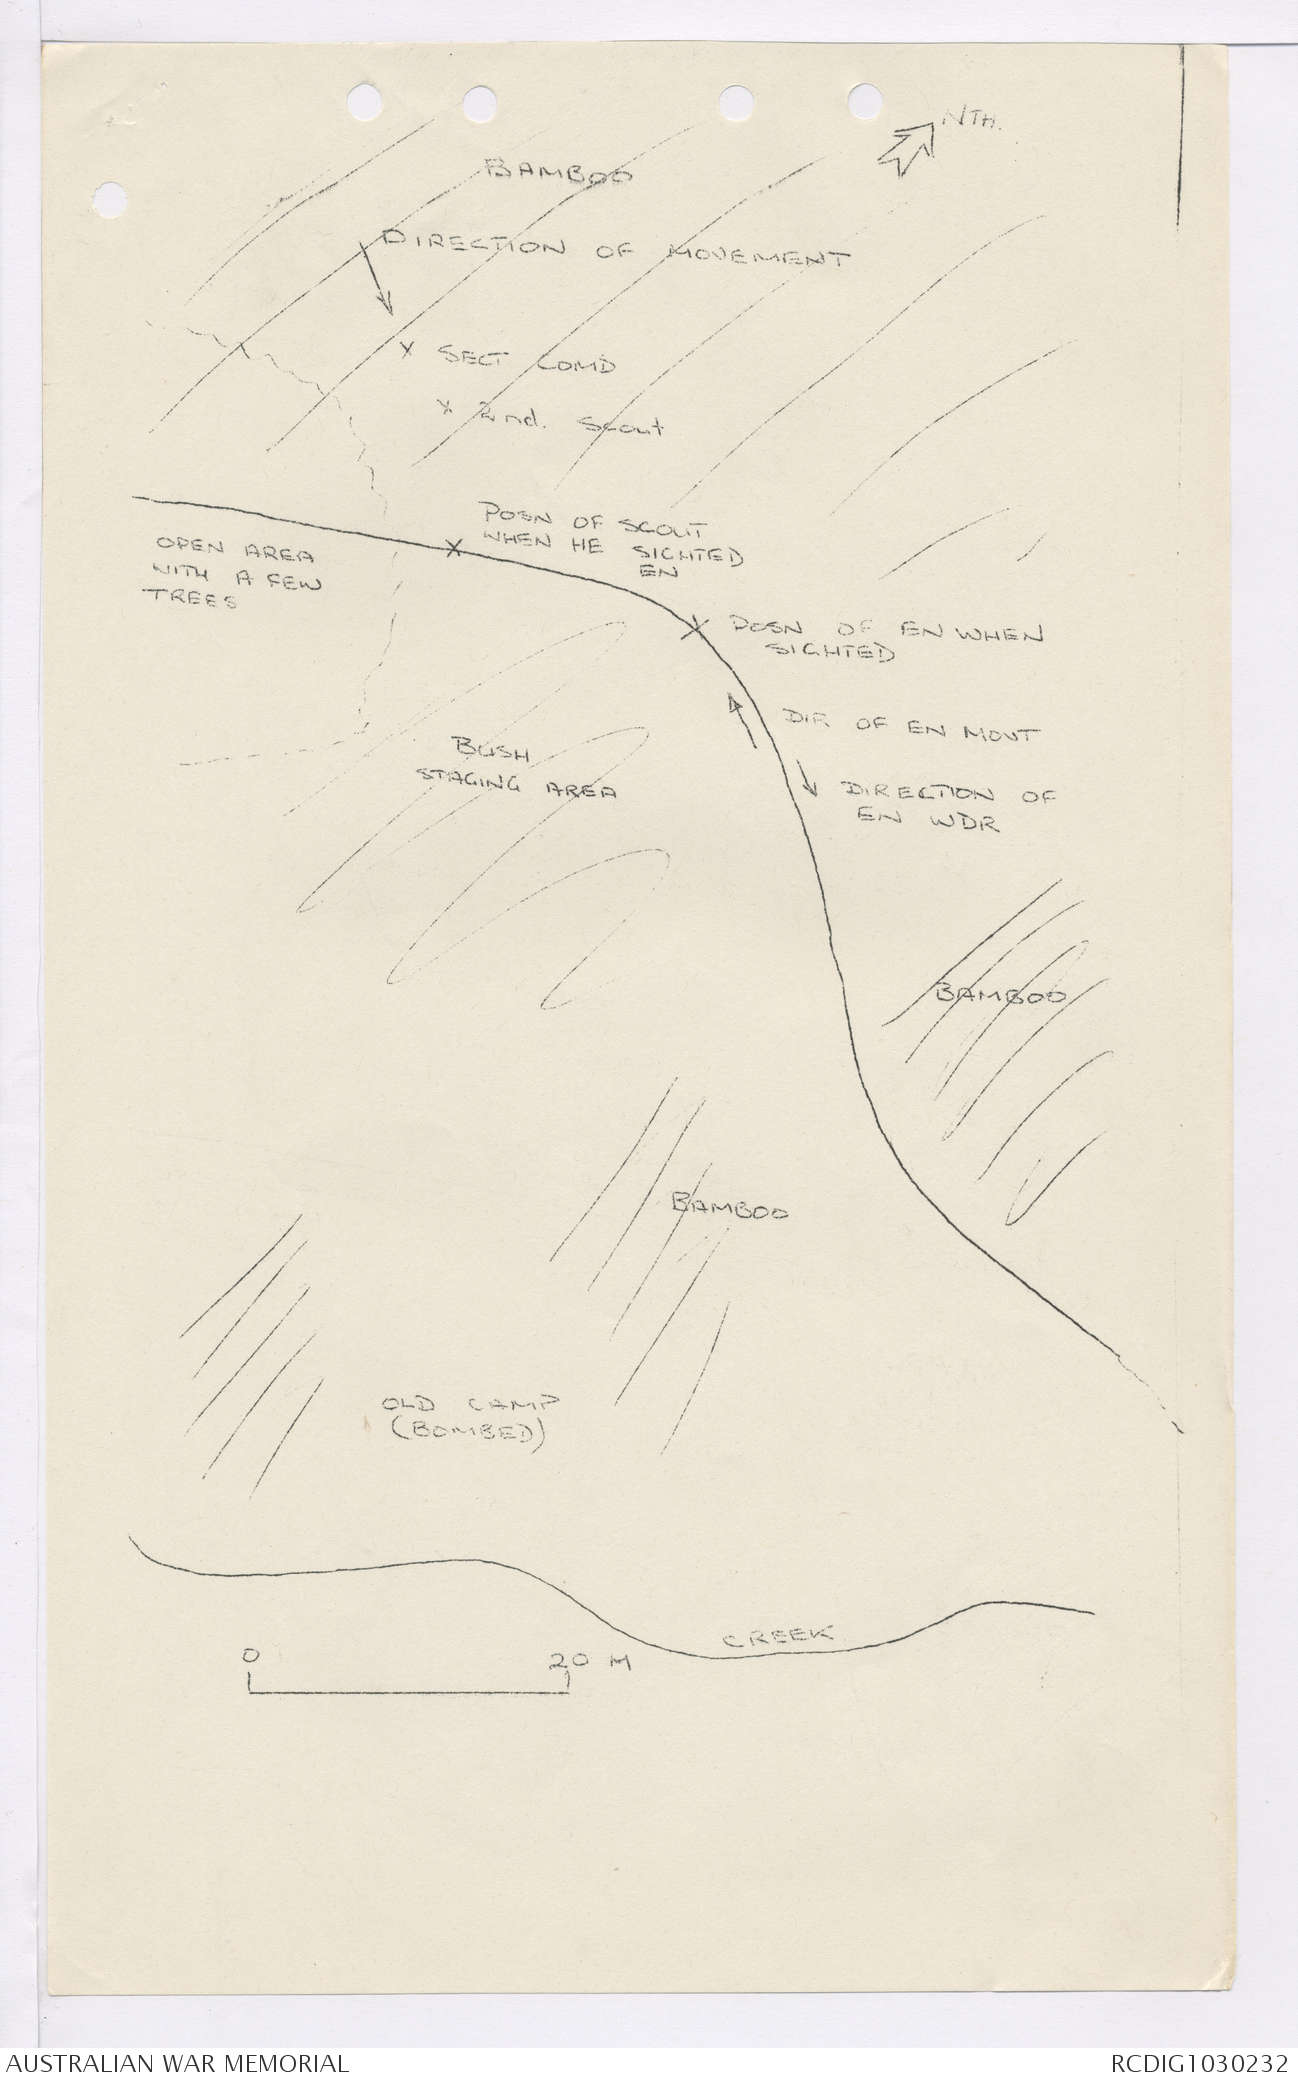 NTH.
BAMBOO
DIRECTION OF MOVEMENT
X SECT COMD
X 2nd. Scout
POSN OF SCOUT
WHEN HE SIGHTED
EN
OPEN AREA
WITH A FEW
TREES
POSN OF EN WHEN
SIGHTED
DIR OF EN MOVT
BUSH
STAGING AREA
DIRECTION OF
EN WDR
BAMBOO
BAMBOO
OLD CAMP
(BOMBED)
CREEK
0 20 M
AUSTRALIAN WAR MEMORIAL RCDIG1030232